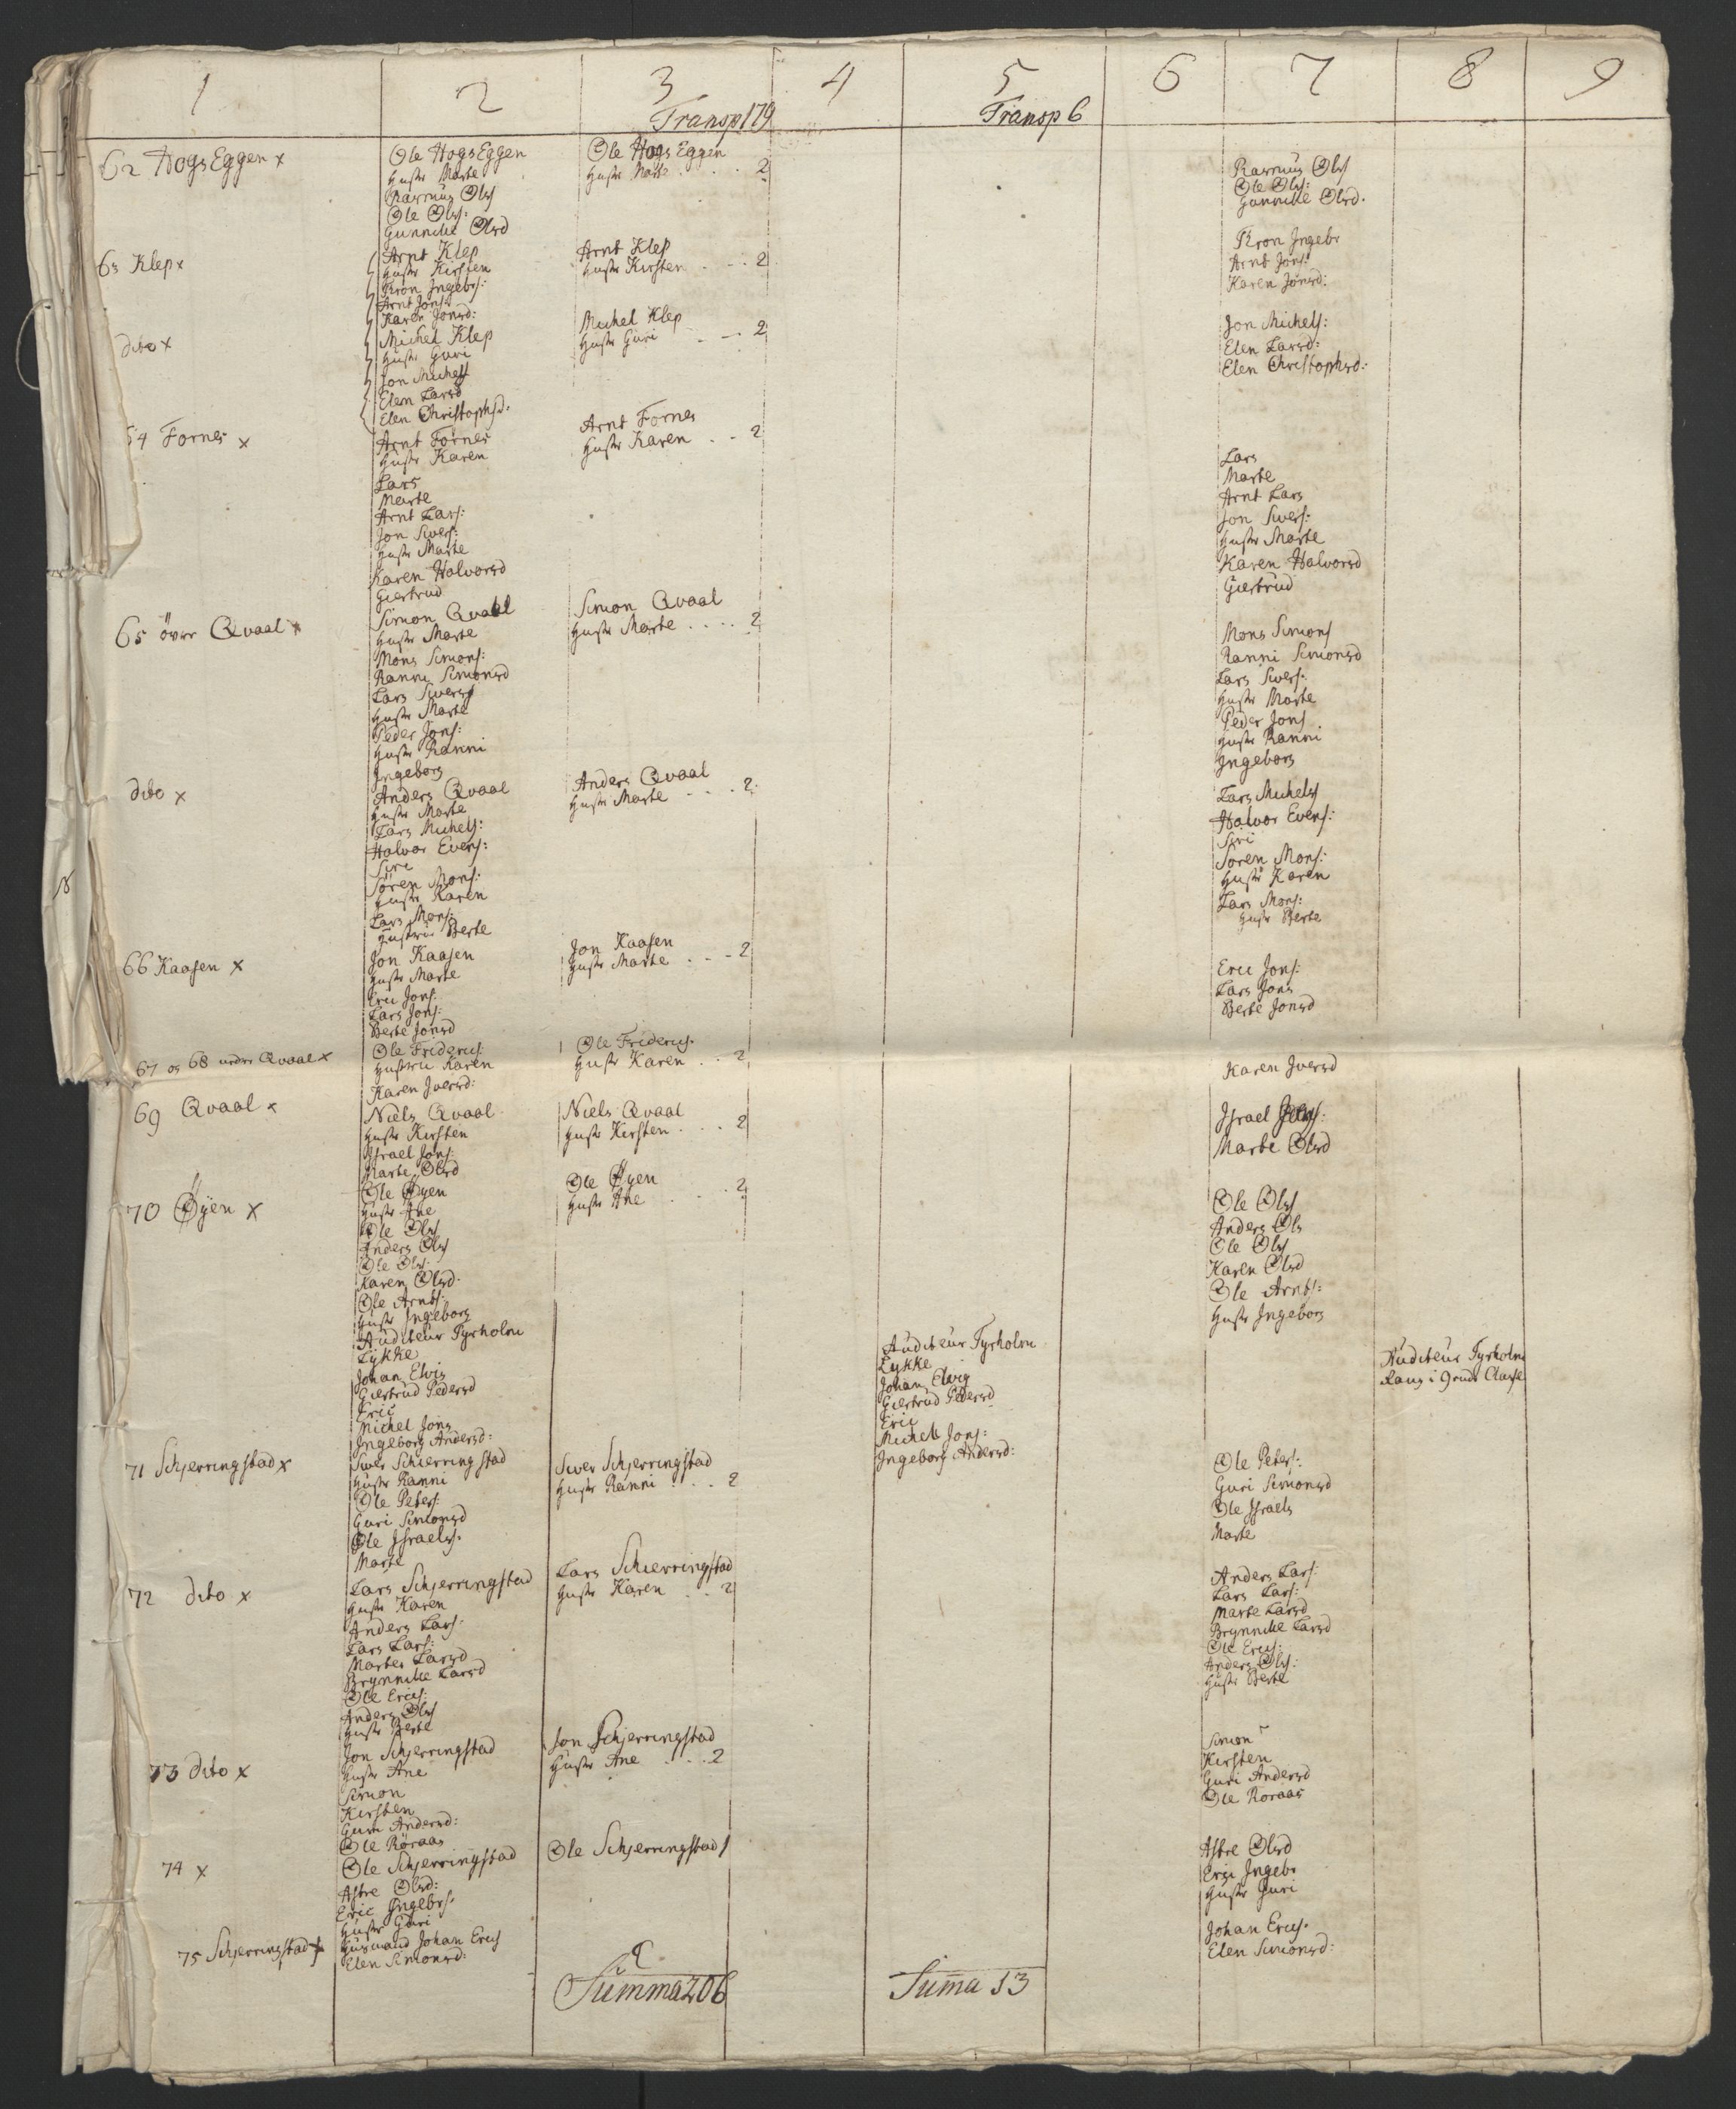 1 2 3 4 5 6 7 8 9
Transp 179 Transp 6
62 HogsEggen x Ole HogsEggen Ole Hogs Eggen
Hustr Marte Hustr Marte . . . . 2 Rasmus Ols
Rasmus Ols Ole Ols:
Ole Ols: Gunnild Olsd.
Gunnild Olsd
63 Klep x Arnt Klep Arnt Klep Kron Ingebr
Hustr Kirsten Hustr Kirsten . . . 2 Arnt Jons:
Kron Ingebrs: Karen Jonsd:
Arnt Jons:
Karen Jonsd:
dito x Michel Klep Michel Klep Jon Michels:
Hustr Guri Hustr Guri . . . 2 Elen Larsd:
Jon Michels Elen Christophsd:
Elen Larsd
Elen Christophsd:
64 Fornes x Arnt Fornes Arnt Fornes
Hustr Karen Hustr Karen . . 2
Lars Lars
Marte Marte
Arnt Lars: Arnt Lars
Jon Sivers: Jon Sivers:
Hustr Marte Hustr Marte
Karen Halvorsd Karen Halvorsd
Giertrud Giertrud
65 över Qvaal x Simon Qvaal Simon Qvaal
Hustr Marte Hustr Marte . . . . 2 Mons Simons
Mons Simons: Ranni Simonsd
Ranni Simonsd Lars Sivers:
Lars Sivers Hustr Marte
Hustr Marte Peder Jons
Peder Jons: Hustr Ranni
Hustr Ranni Ingeborg
Ingeborg
dito x Anders Qvaal Anders Qvaal Lars Michels
Hustr Marte Hustr Marte . . . . 2. Halvor Evens:
Lars Michels: Siri
Halvor Evens: Sören Mons:
Siri Hustr Karen
Sören Mons: Lars Mons:
Hustr Karen Hustr Berte
Lars Mons:
Hustrue Berte
66 Kaasen x Jon Kaasen Jon Kaasen
Hustr Marte Hustr Marte . . . 2 Eric Jons:
Eric Jons: Lars Jons
Lars Jons: Berte Jonsd
Berte Jonsd
67 og 68 nedre Qvaal x Ole Friderics: Ole Friderics.
Hustrue Karen Hustr Karen . . 2 Karen Iversd
Karen Iversd:
69 Qvaal x Niels Qvaal Niels Qvaal Israel Jons:
Hustr Kirsten Hustr Kirsten . . . 2 Marte Olsd
Israel Jons:
Marte Olsd
70 Øyen x Ole Øyen Ole Øyen
Hustr Ane Hustr Ane . . . 2 Ole Ols
Ole Ols Anders Ols
Anders Ols Ole Ols
Ole Ols: Karen Olsd
Karen Olsd: Ole Arnts:
Ole Arnts: Hustr Ingeborg
Hustr Ingeborg
Auditeur Tyrholm Auditeur Tyrholm Auditeur Tyrholm
Lykke Lykke Rang i 9nde Classe
Johan Elvig Johan Elvig
Giertrud Pedersd Giertrud Pedersd
Eric Eric
Michel Jons Michels Jons:
Ingeborg Andersd: Ingeborg Andersd:
71 Schjerringstad x Siver Schierringstad Siver Schjerringstad Ole Peters:
Hustr Ranni Hustr Ranni . . . . 2 Guri Simonsd
Ole Peters: Ole Israels
Guri Simonsd Marte
Ole Israels:
Marte
72 dito x Lars Schjerringstad Lars Schierringstad Anders Lars:
Hustr Karen Hustr Karen . . 2 Lars Lars:
Anders Lars: Marte Larsd
Lars Lars: Brynnild Larsd
Marte Larsd Ole Erics:
Brynnild Larsd Anders Ols:
Ole Erics: Hustr Berte
Anders Ols
Hustr Berte
73 dito x Jon Schjerringstad Jon Schjerringstad Simon
Hustr Ane Hustr Ane . . . . 2 Kirsten
Simon Guri Andersd
Kirsten Ole Roraas
Guri Andersd:
Ole Röraas
74 x Ole Schjerringstad Ole Schjerringstad 1 Astre Olsd
Astre Olsd: Eric Ingebr
Eric Ingebrs: Hustr Guri
Hustr Guri
75 Schjerringstad x Huusmand Johan Erics Johan Erics.
Elen Simonsd: Elen Simonsd:
Summa 206 Suma 13